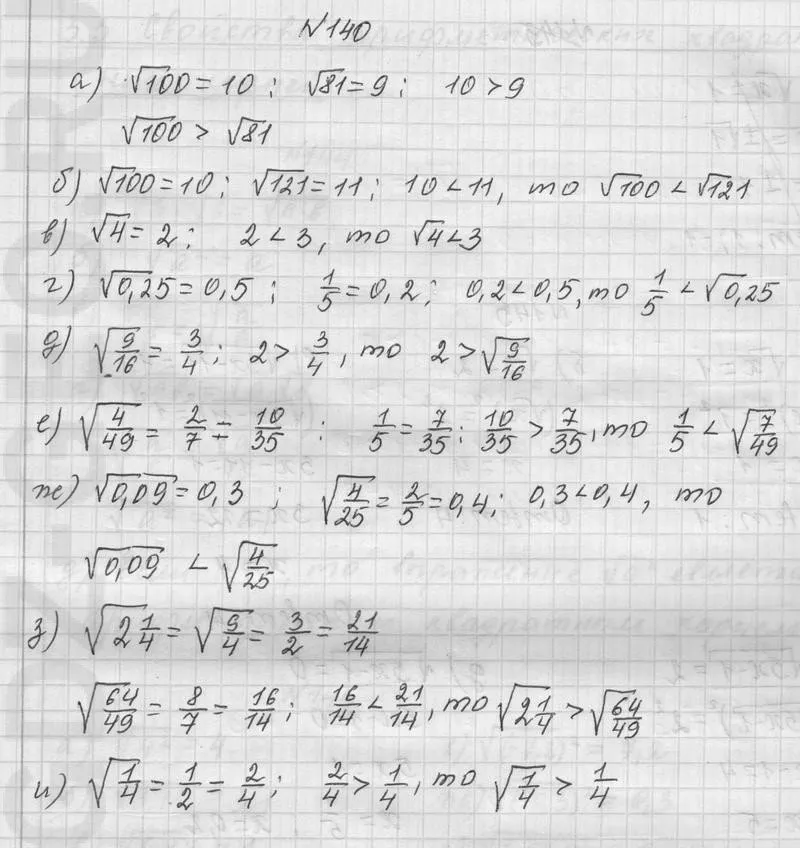 №140
а) √100 = 10 ; √81 = 9 ; 10 > 9
√100 > √81
б) √100 = 10 ; √121 = 11 ; 10 < 11, то √100 < √121
в) √4 = 2 ; 2 < 3, то √4 < 3
г) √0,25 = 0,5 ; 1/5 = 0,2 ; 0,2 < 0,5, то 1/5 < √0,25
д) √9/16 = 3/4 ; 2 > 3/4, то 2 > √9/16
е) √4/49 = 2/7 = 10/35 ; 1/5 = 7/35 ; 10/35 > 7/35, то 1/5 < √7/49
ж) √0,09 = 0,3 ; √4/25 = 2/5 = 0,4 ; 0,3 < 0,4, то
√0,09 < √4/25
з) √2 1/4 = √9/4 = 3/2 = 21/14
√64/49 = 8/7 = 16/14 ; 16/14 < 21/14, то √2 1/4 > √64/49
и) √1/4 = 1/2 = 2/4 ; 2/4 > 1/4, то √1/4 > 1/4